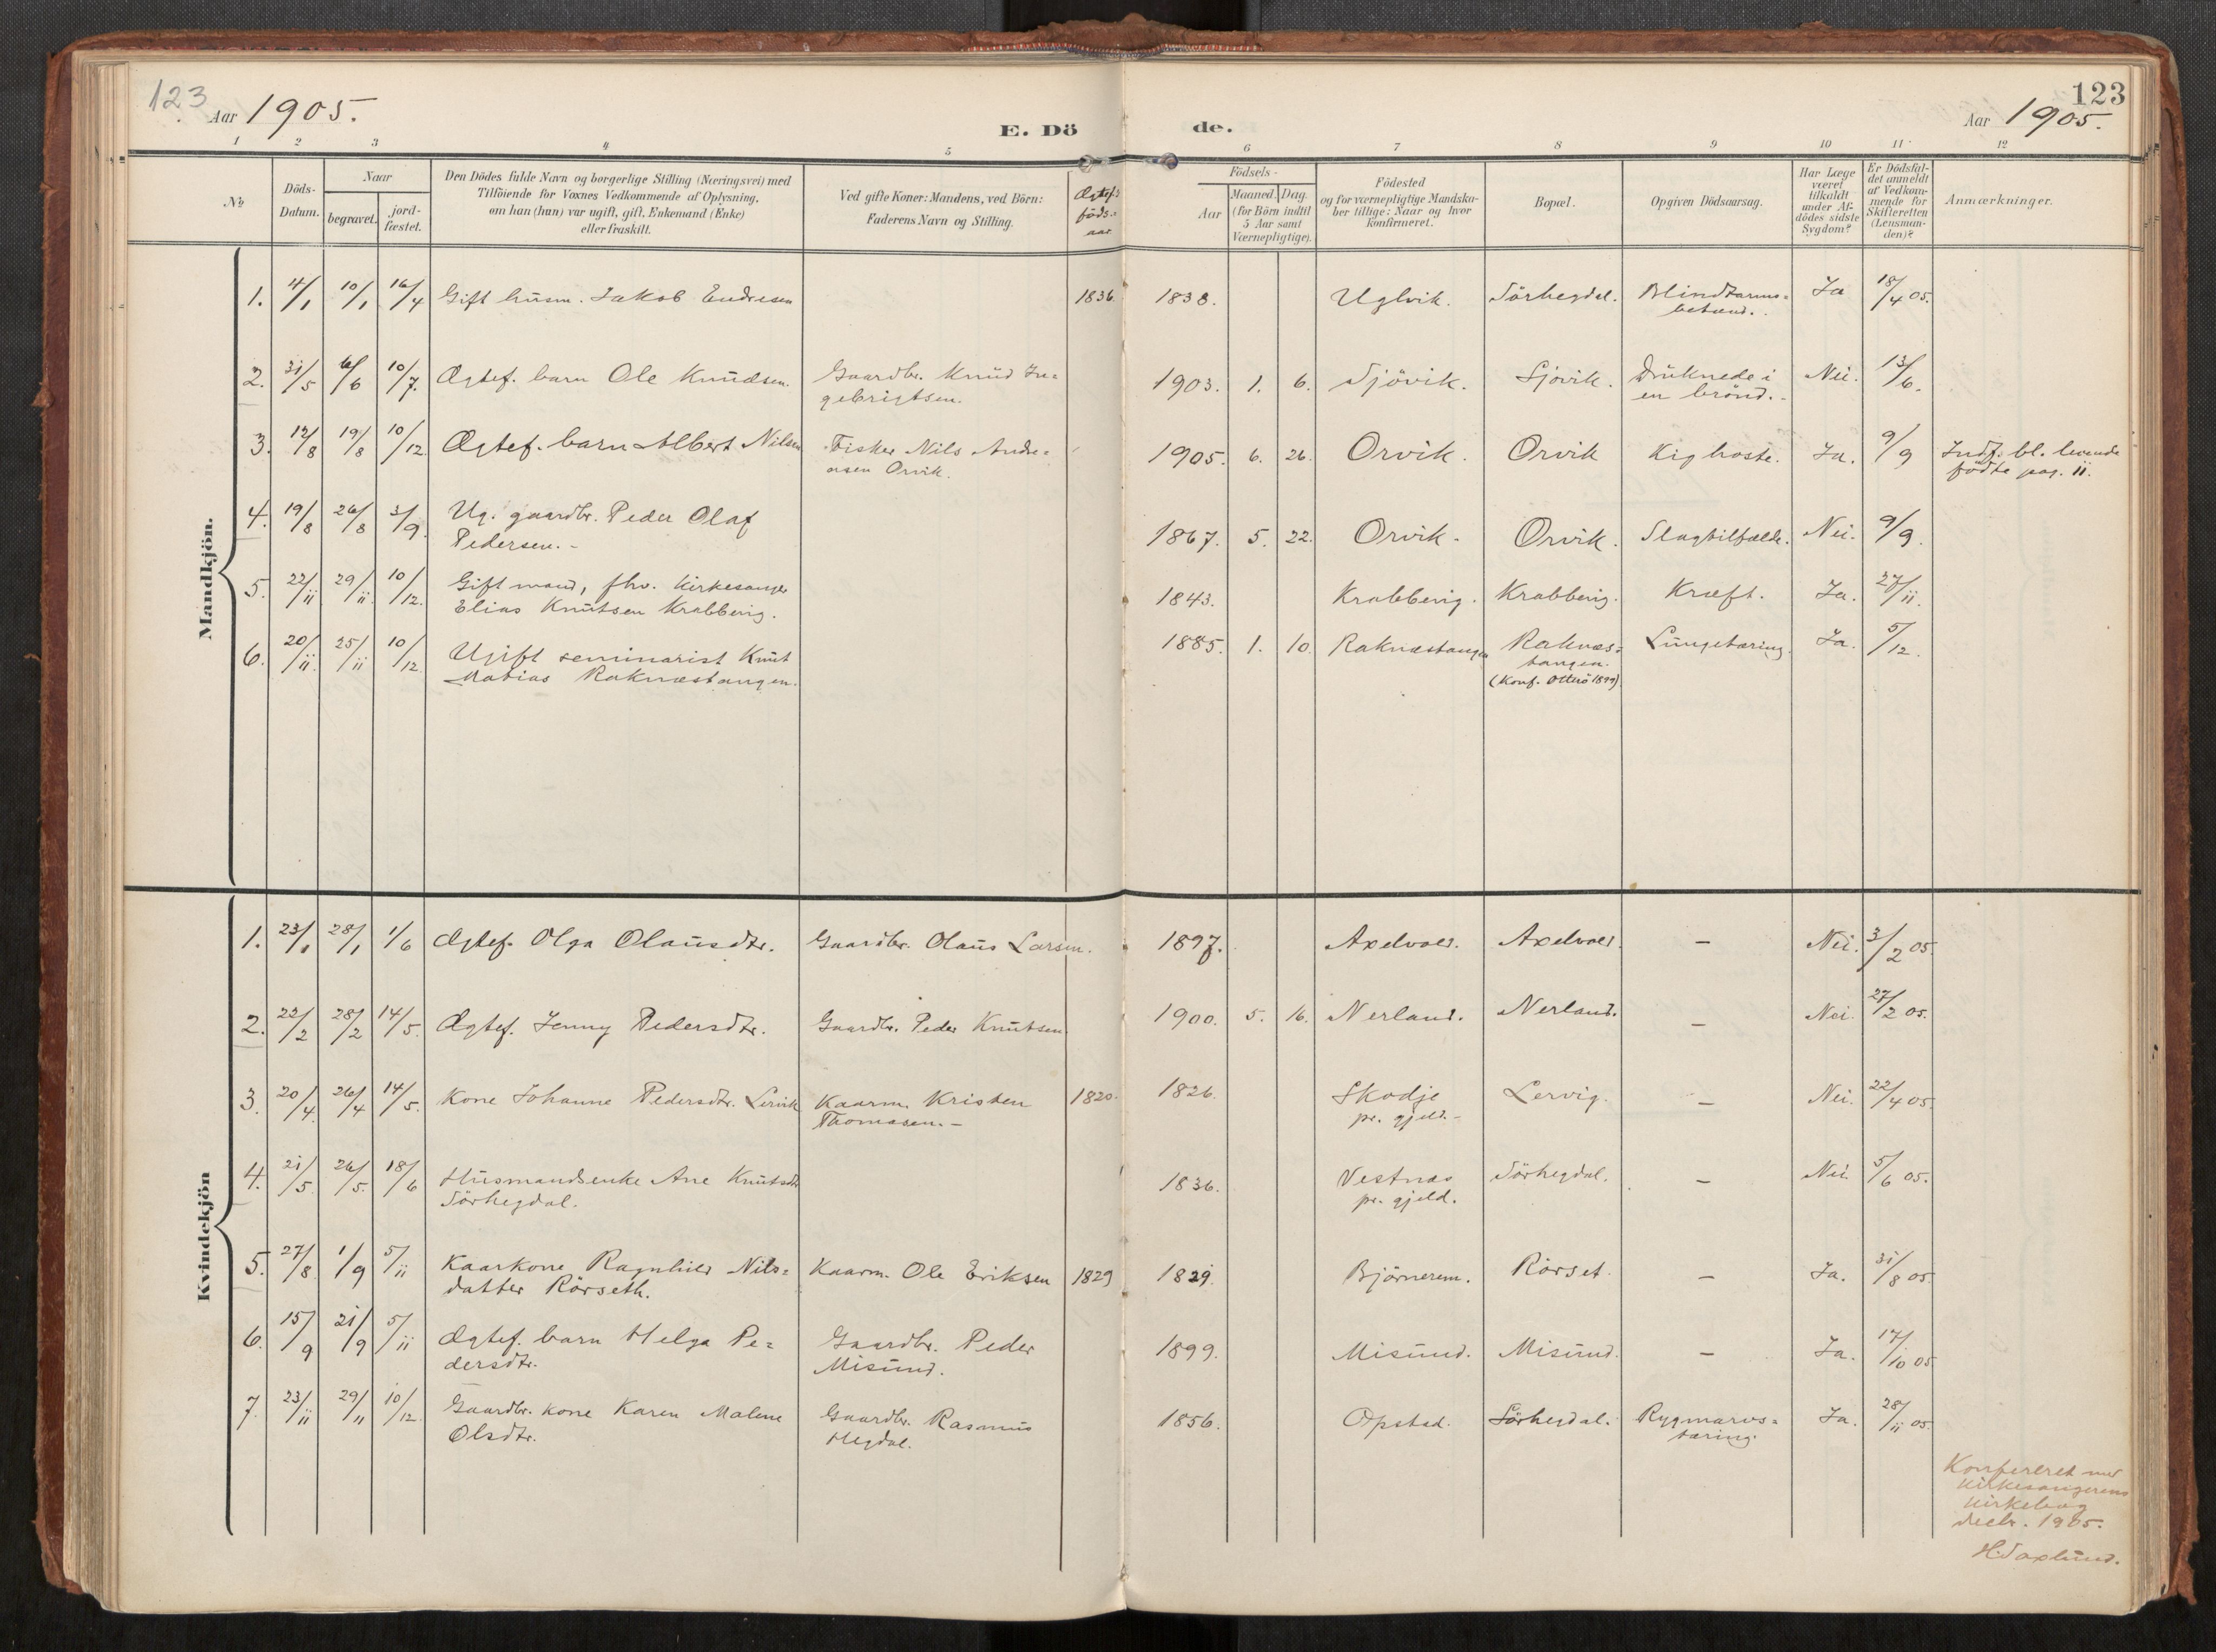 123
Aar 1905.
E. Dö
de.
123
Aar 1905.
1 2 3 4 5 6 7 8 9 10 11 12
No
Döds-
Datum.
Naar
begravet.
jord-
fæstet.
Den Dödes fulde Navn og borgerlige Stilling (Næringsvei) med
Tilföiende for Voxnes Vedkommende af Oplysning,
om han (hun) var ugift, gift, Enkemand (Enke)
eller fraskilt.
Ved gifte Koner: Mandens, ved Börn:
Faderens Navn og Stilling.
Ægtef.s
föds.=
aar
Födsels-
Aar
Maaned. Dag.
(for Börn indtil
5 Aar samt
Værnepligtige).
Födested
og for værnepligtige Mandska-
ber tillige: Naar og hvor
konfirmeret.
Bopæl.
Opgiven Dödsaarsag.
Har Læge
været
tilkaldt
under Af-
dödes sidste
Sygdom?
Er Dödsfal-
det anmeldt
af Vedkom-
mende for
Skifteretten
(Lensman-
den)?
Anmærkninger.
Mandkjön.
1. 4/1 10/1 16/4 Gift husm. Jakob Endresen 1836. 1838. Uglvik. Sörhegdal. Blindtarms=
betænd. Ja 18/4 05.
2. 31/5 6/6 10/7. Ægtef. barn Ole Knudsen. Gaardbr. Knud In=
gebrigtsen. 1903. 1. 6. Sjövik. Sjövik. Druknede i
en brönd. Nei. 13/6.
3. 12/8 19/8 10/12. Ægtef. barn Albert Nilsen Fisker Nils Andre=
asen Orvik. 1905. 6. 26. Orvik. Orvik Kighoste. Ja. 9/9 Indf. bl. levende
födte pag. 11.
4. 19/8 26/8 3/9. Ug. gaardbr. Peder Olaf
Pedersen. 1867. 5. 22. Orvik. Orvik. Slagtilfælde. Nei. 9/9.
5. 22/11 29/11 10/12. Gift mand, fhv. kirkesanger
Elias Knutsen Krabbevig. 1843. Krabbevig. Krabbevig. Kræft. Ja. 27/11.
6. 20/11 25/11 10/12 Ugift seminarist Knut
Matias Raknæstangen. 1885. 1. 10. Raknæstangen Raknæs=
tangen.
(Konf. Otterö 1899) Lungetæring. Ja. 5/12.
Kvindekjön
1. 23/1 28/1 1/6 Ægtef. Olga Olausdtr. Gaardbr. Olaus Larsen. 1897. Axelvoll. Axelvoll. - Nei. 3/2 05.
2. 22/2 28/2 14/5. Ægtef. Jenny Pedersdtr. Gaardbr. Peder Knutsen 1900. 5. 16. Nerland. Nerland. - Nei. 27/2 05.
3. 20/4 26/4 14/5. Kone Johanne Pedersdtr. Lervik Kaarm. Kristen
Thomasen. 1820. 1826. Skodje
pr. gjeld. Lervig. - Nei. 22/4 05.
4. 21/5 26/5. 18/6 Husmandsenke Ane Knutsdtr.
Sörhegdal. 1836. Vestnæs
pr. gjeld. Sörhegdal. - Nei. 5/6 05.
5. 27/8 1/9 5/11 Kaarkone Ragnhild Nils=
datter Rörseth. Kaarm. Ole Eriksen 1829 1829. Björnerem. Rörset. - Ja. 31/8 05
6. 15/9 21/9 5/11 Ægtef. barn Helga Pe=
dersdtr. Gaardbr. Peder
Misund. 1899. Misund. Misund. - Ja. 17/10 05
7. 23/11 29/11 10/12. Gaardbr. kone Karen Malene
Olsdtr. Gaardbr. Rasmus
Hegdal. 1856. Opstad. Sörhegdal. Rygmarvs=
tæring. Ja. 28/11 05
Konfereret med
kirkesangerens
kirkebog
decbr. 1905.
H. Saxlund.